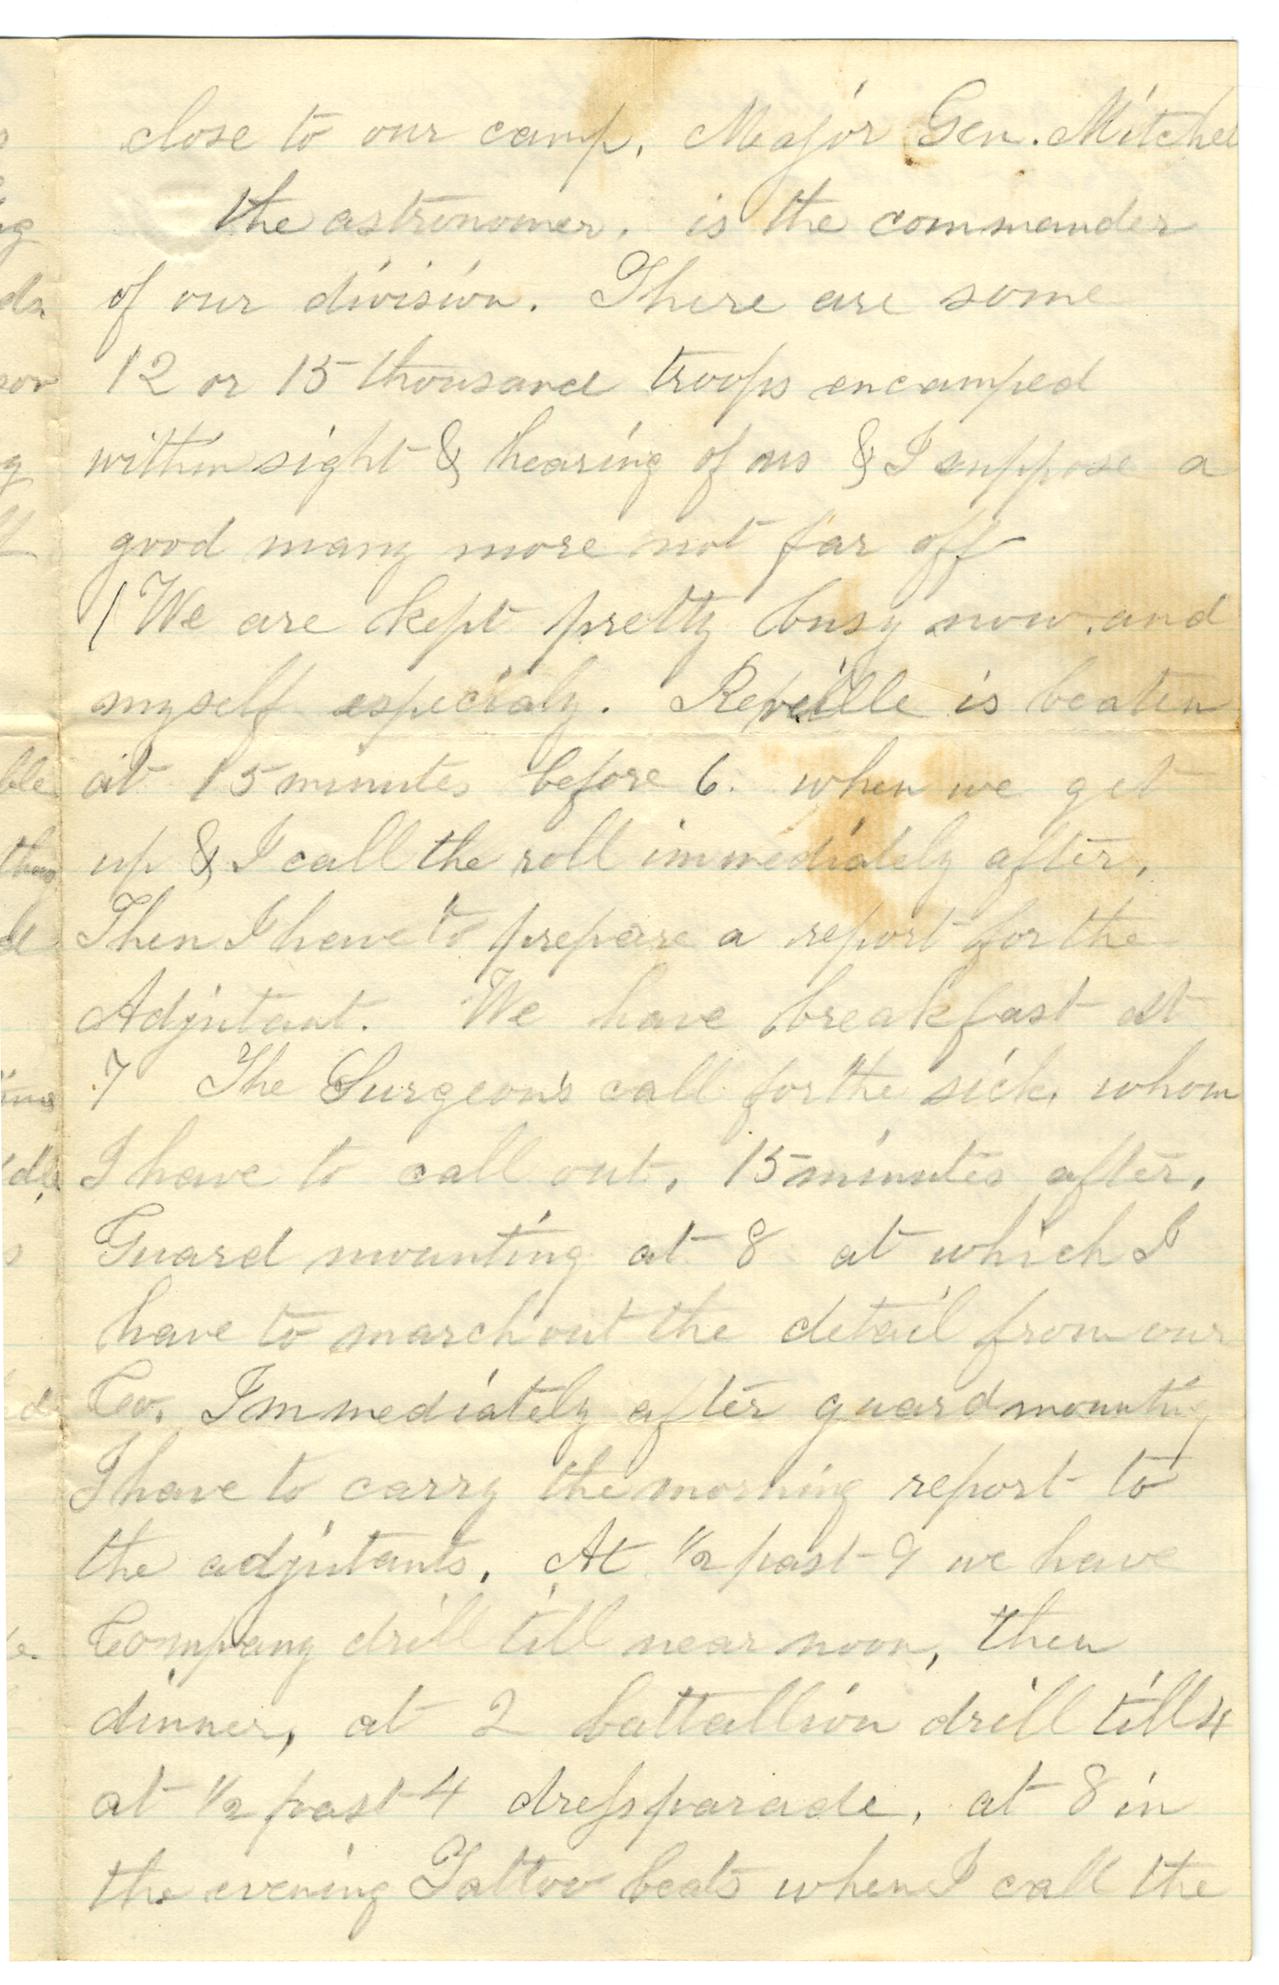 close to our camp, Major Gen. Mitchel
the astronomer, is the commander
of our division. There are some
12 or 15 thousand troops encamped
within sight & hearing of us & I suppose a
good many more not far off
(We are kept pretty busy now, and
myself especialy. Reveille is beaten
at 15 minutes before 6. when we get
up & I call the roll immediately after,
Then I have to prepare a report for the
Adjutant. We have breakfast at
7 The Surgeon's call for the sick, whom
I have to call out, 15 minutes after,
Guard mounting at 8 at which I
have to march out the detail from our
Co. Immediately after guard mounting
I have to carry the morning report to
the adjutants. At 1/2 past 9 we have
Company drill till near noon, then
dinner, at 2 battallion drill till 4
at 1/2 past 4 dress parade, at 8 in
the evening Tattoo beats when I call the